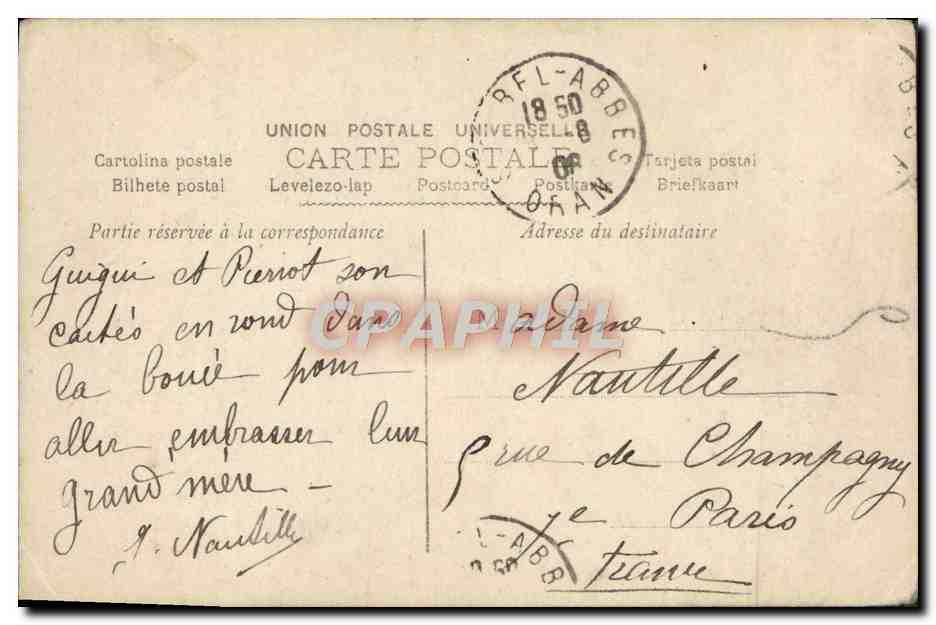 BEL-ABBES
18 50
-8
06
ORAN
UNION POSTALE UNIVERSELLE
CARTE POSTALE
Cartolina postale
Tarjeta postal
Bilhete postal Levelezo-lap Postcard Postkarte Briefkaart
Partie réservée à la correspondance
Guigui et Pierrot son
cachés en rond dans
la bouée pour
aller embrasser leur
grand mère —
Nautille
Adresse du destinataire
Madame
Nautille
5 rue de Champagny
7e Paris
France
L-ABB
50
CPAPHIL